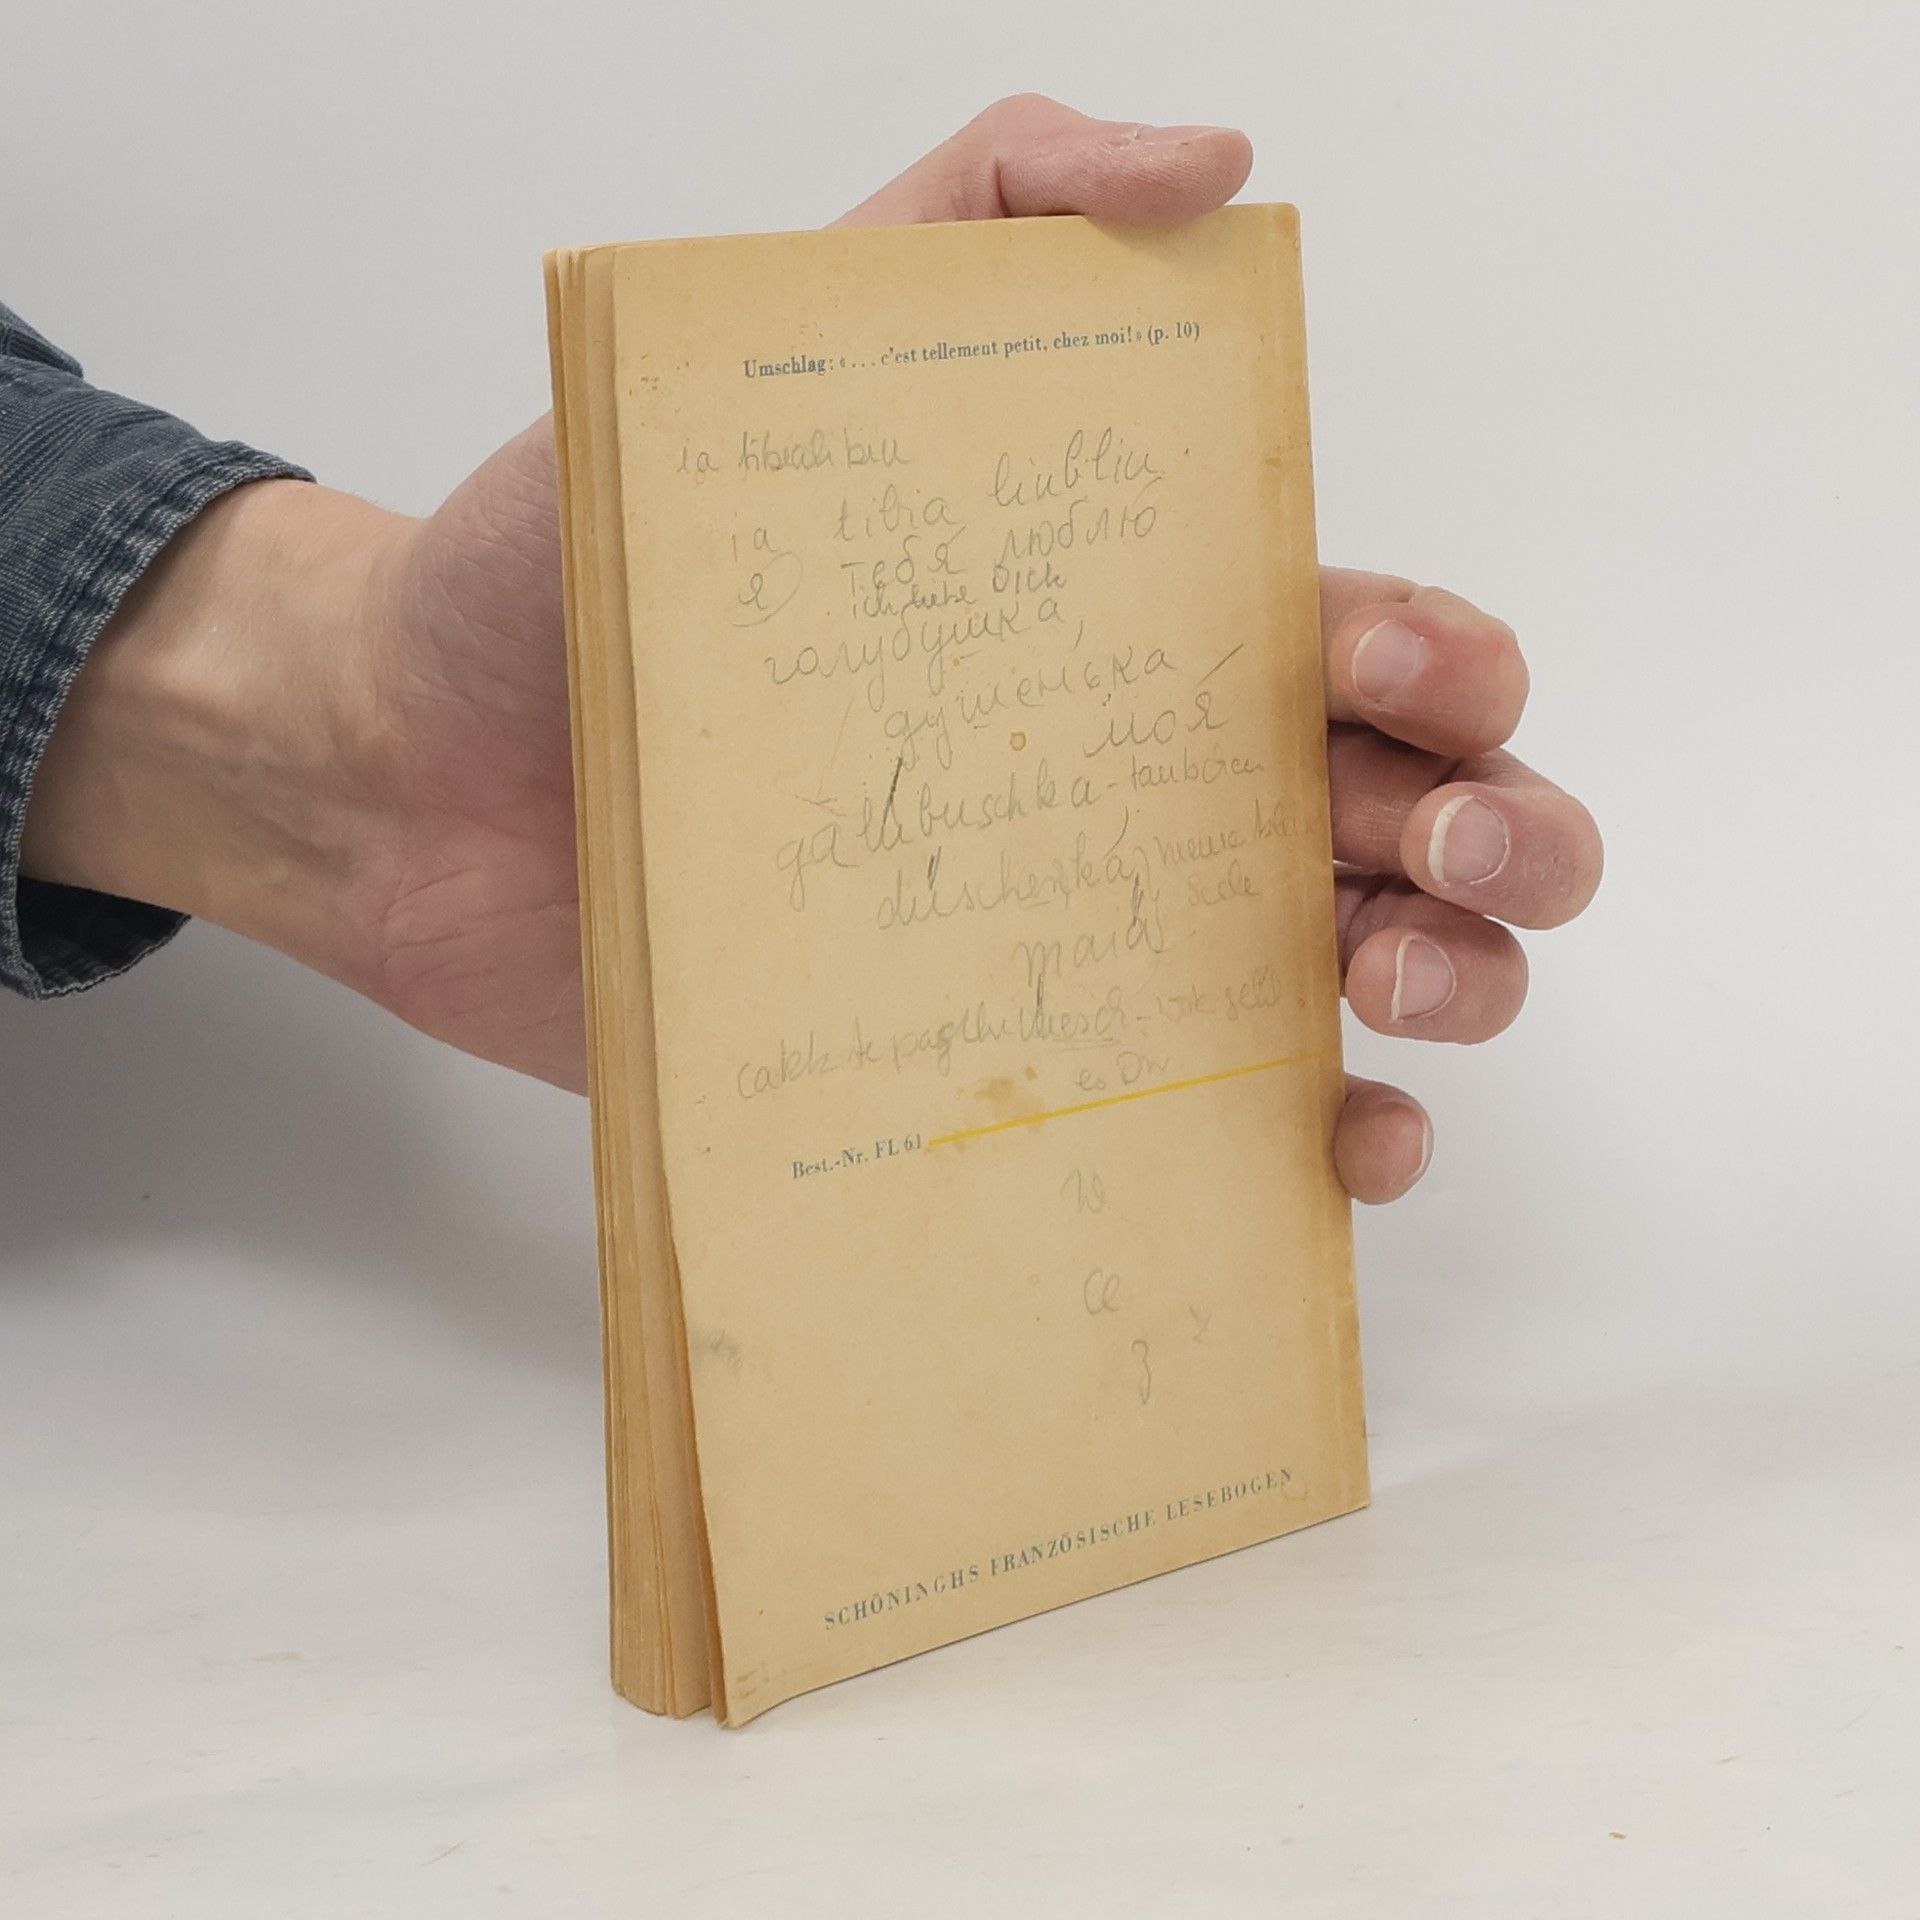 Umschlag: « . . . c'est tellement petit, chez moi! » (p. 10)
ia
ia tibia liubliu.
я тебя люблю
ich liebe Dich
голубушка,
душенька
моя
galubuschka - täubchen
duschenka, meine
Seele
maia
wie
es Dir
Best.-Nr. FL 61
W
Ce
3
SCHÖNINGHS FRANZÖSISCHE LESEBOGEN